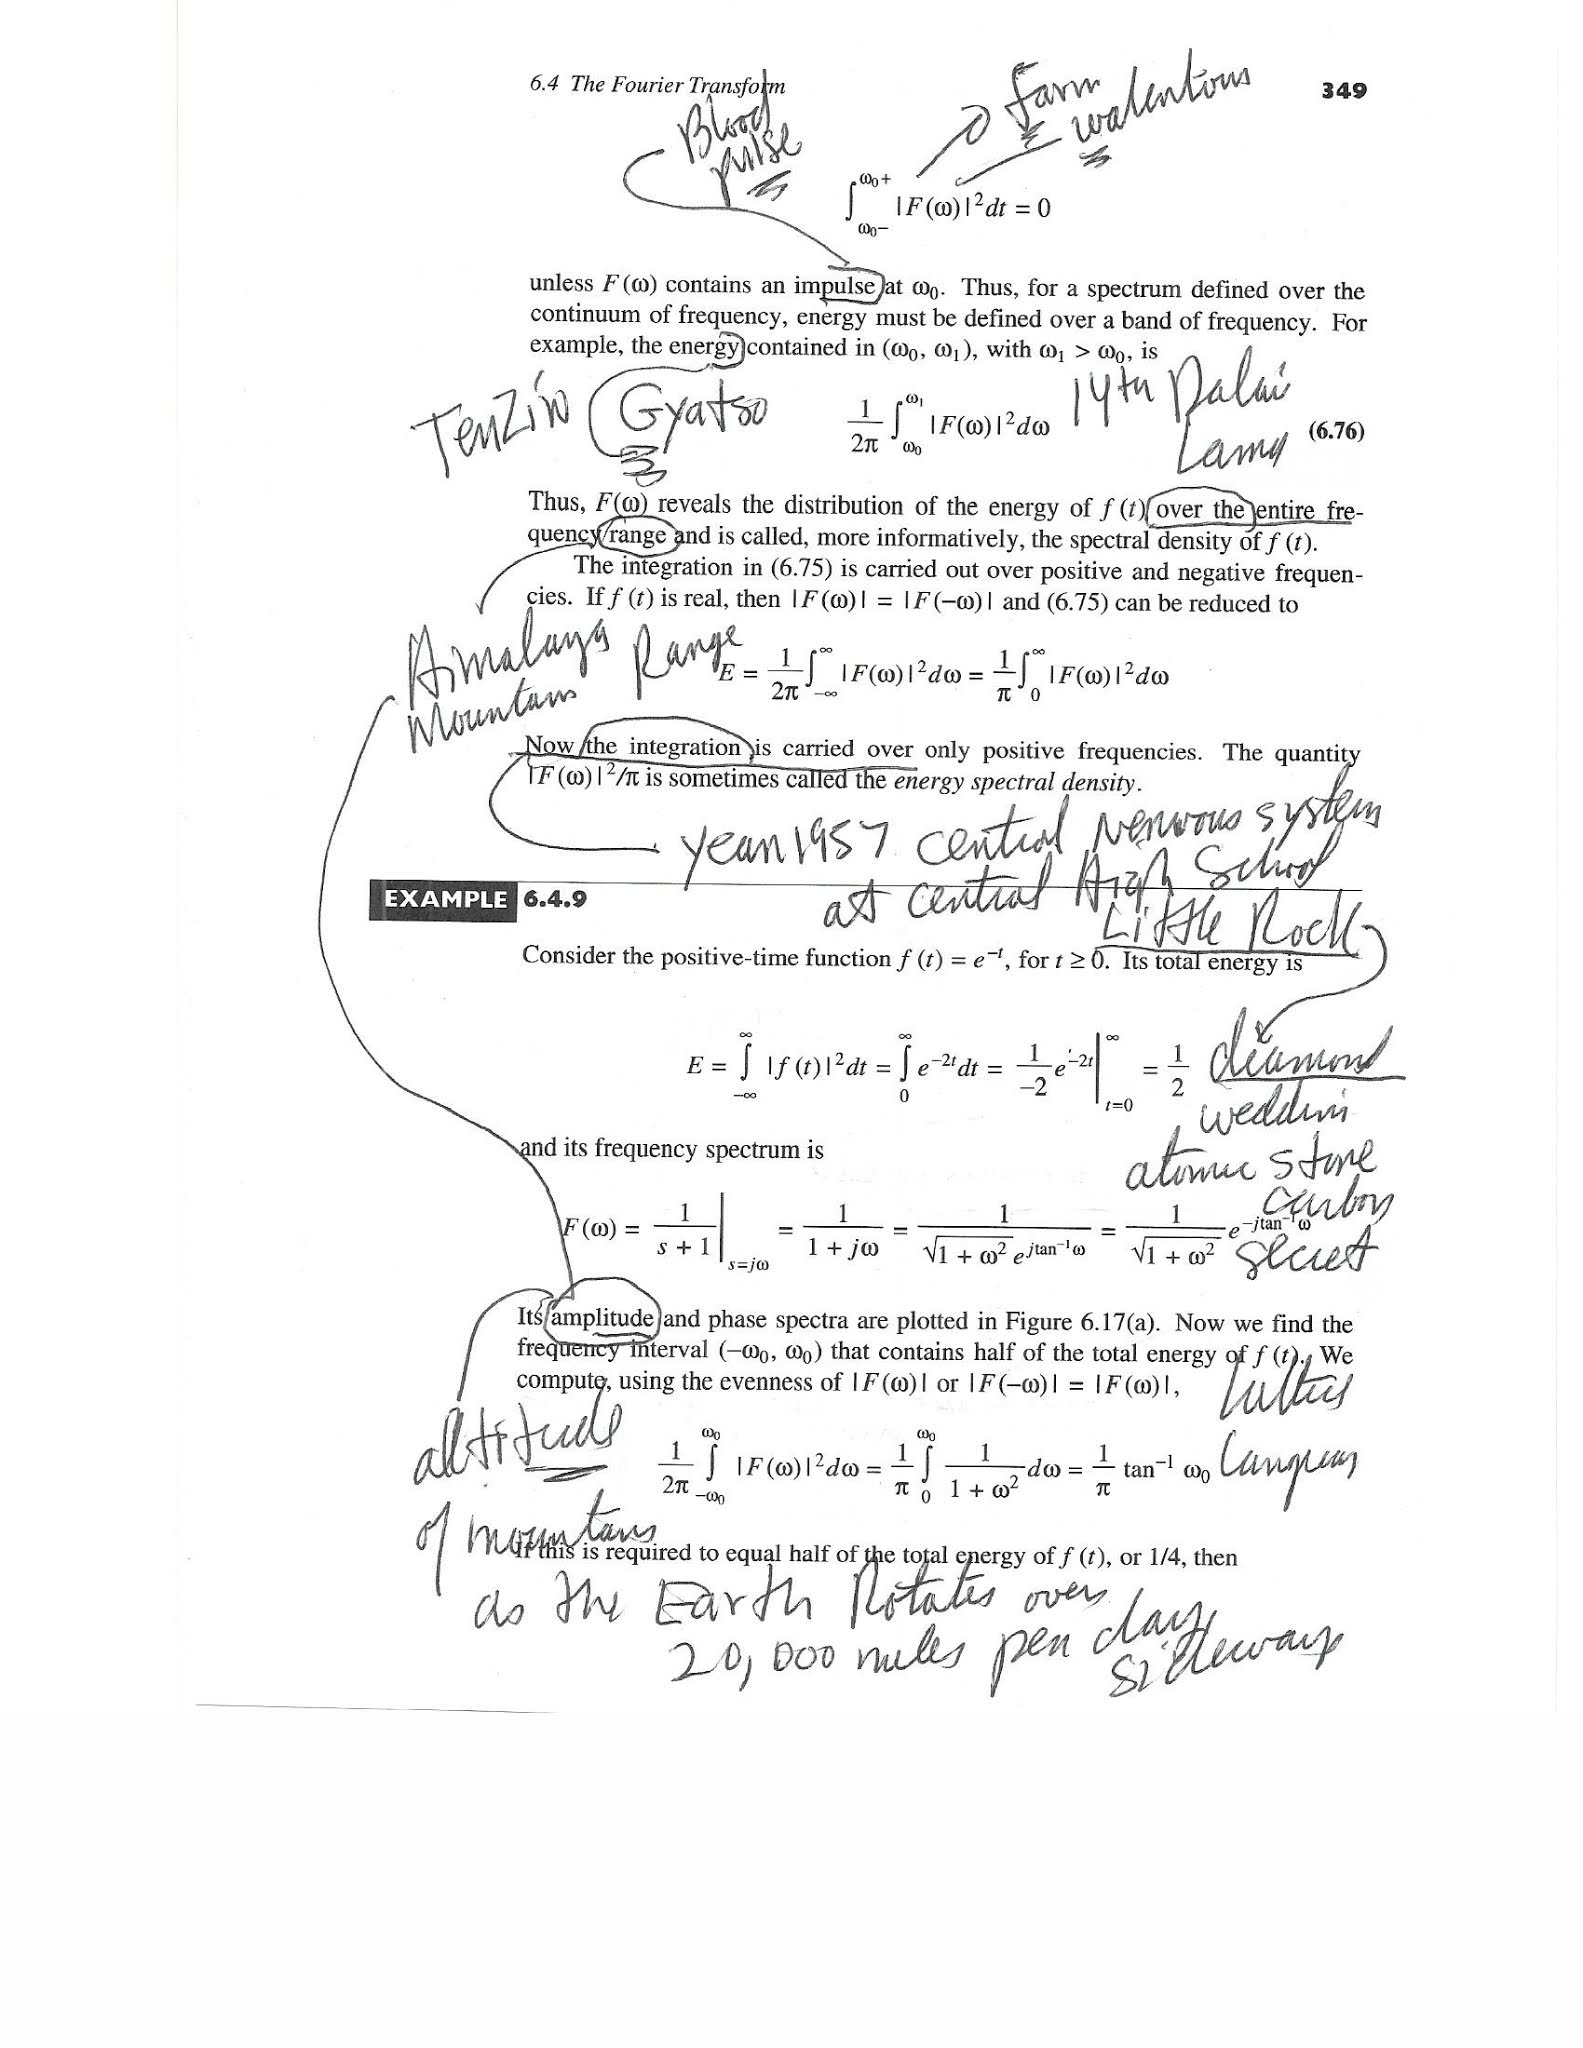 6.4 The Fourier Transform
349
Blood
pulse
farm
∫_{ω₀−}^{ω₀+} |F(ω)|² dt = 0
unless F(ω) contains an impulse at ω₀. Thus, for a spectrum defined over the
continuum of frequency, energy must be defined over a band of frequency. For
example, the energy contained in (ω₀, ω₁), with ω₁ > ω₀, is
Tenzin Gyatso
14th Dalai
Lama
1/2π ∫_{ω₀}^{ω₁} |F(ω)|² dω
(6.76)
Thus, F(ω) reveals the distribution of the energy of f (t) over the entire fre-
quency range and is called, more informatively, the spectral density of f (t).
The integration in (6.75) is carried out over positive and negative frequen-
cies. If f (t) is real, then |F(ω)| = |F(−ω)| and (6.75) can be reduced to
Himalaya Range
Mountain
E = 1/2π ∫_{−∞}^{∞} |F(ω)|² dω = 1/π ∫_{0}^{∞} |F(ω)|² dω
Now the integration is carried over only positive frequencies. The quantity
|F(ω)|²/π is sometimes called the energy spectral density.
year 1957 central nervous system
at central High School
Little Rock
EXAMPLE 6.4.9
Consider the positive-time function f (t) = e^{−t}, for t ≥ 0. Its total energy is
E = ∫_{−∞}^{∞} |f (t)|² dt = ∫_{0}^{∞} e^{−2t} dt = 1/−2 e^{−2t} |_{t=0}^{∞} = 1/2
diamond
atomic stone
carbon
secret
and its frequency spectrum is
F(ω) = 1/(s + 1) |_{s=jω} = 1/(1 + jω) = 1/(√(1 + ω²) e^{jtan⁻¹ω}) = 1/√(1 + ω²) e^{−jtan⁻¹ω}
Its amplitude and phase spectra are plotted in Figure 6.17(a). Now we find the
frequency interval (−ω₀, ω₀) that contains half of the total energy of f (t). We
compute, using the evenness of |F(ω)| or |F(−ω)| = |F(ω)|,
altitude
of mountains
1/2π ∫_{−ω₀}^{ω₀} |F(ω)|² dω = 1/π ∫_{0}^{ω₀} 1/(1 + ω²) dω = 1/π tan⁻¹ ω₀
If this is required to equal half of the total energy of f (t), or 1/4, then
as the Earth Rotates over
20,000 miles per day
sideways